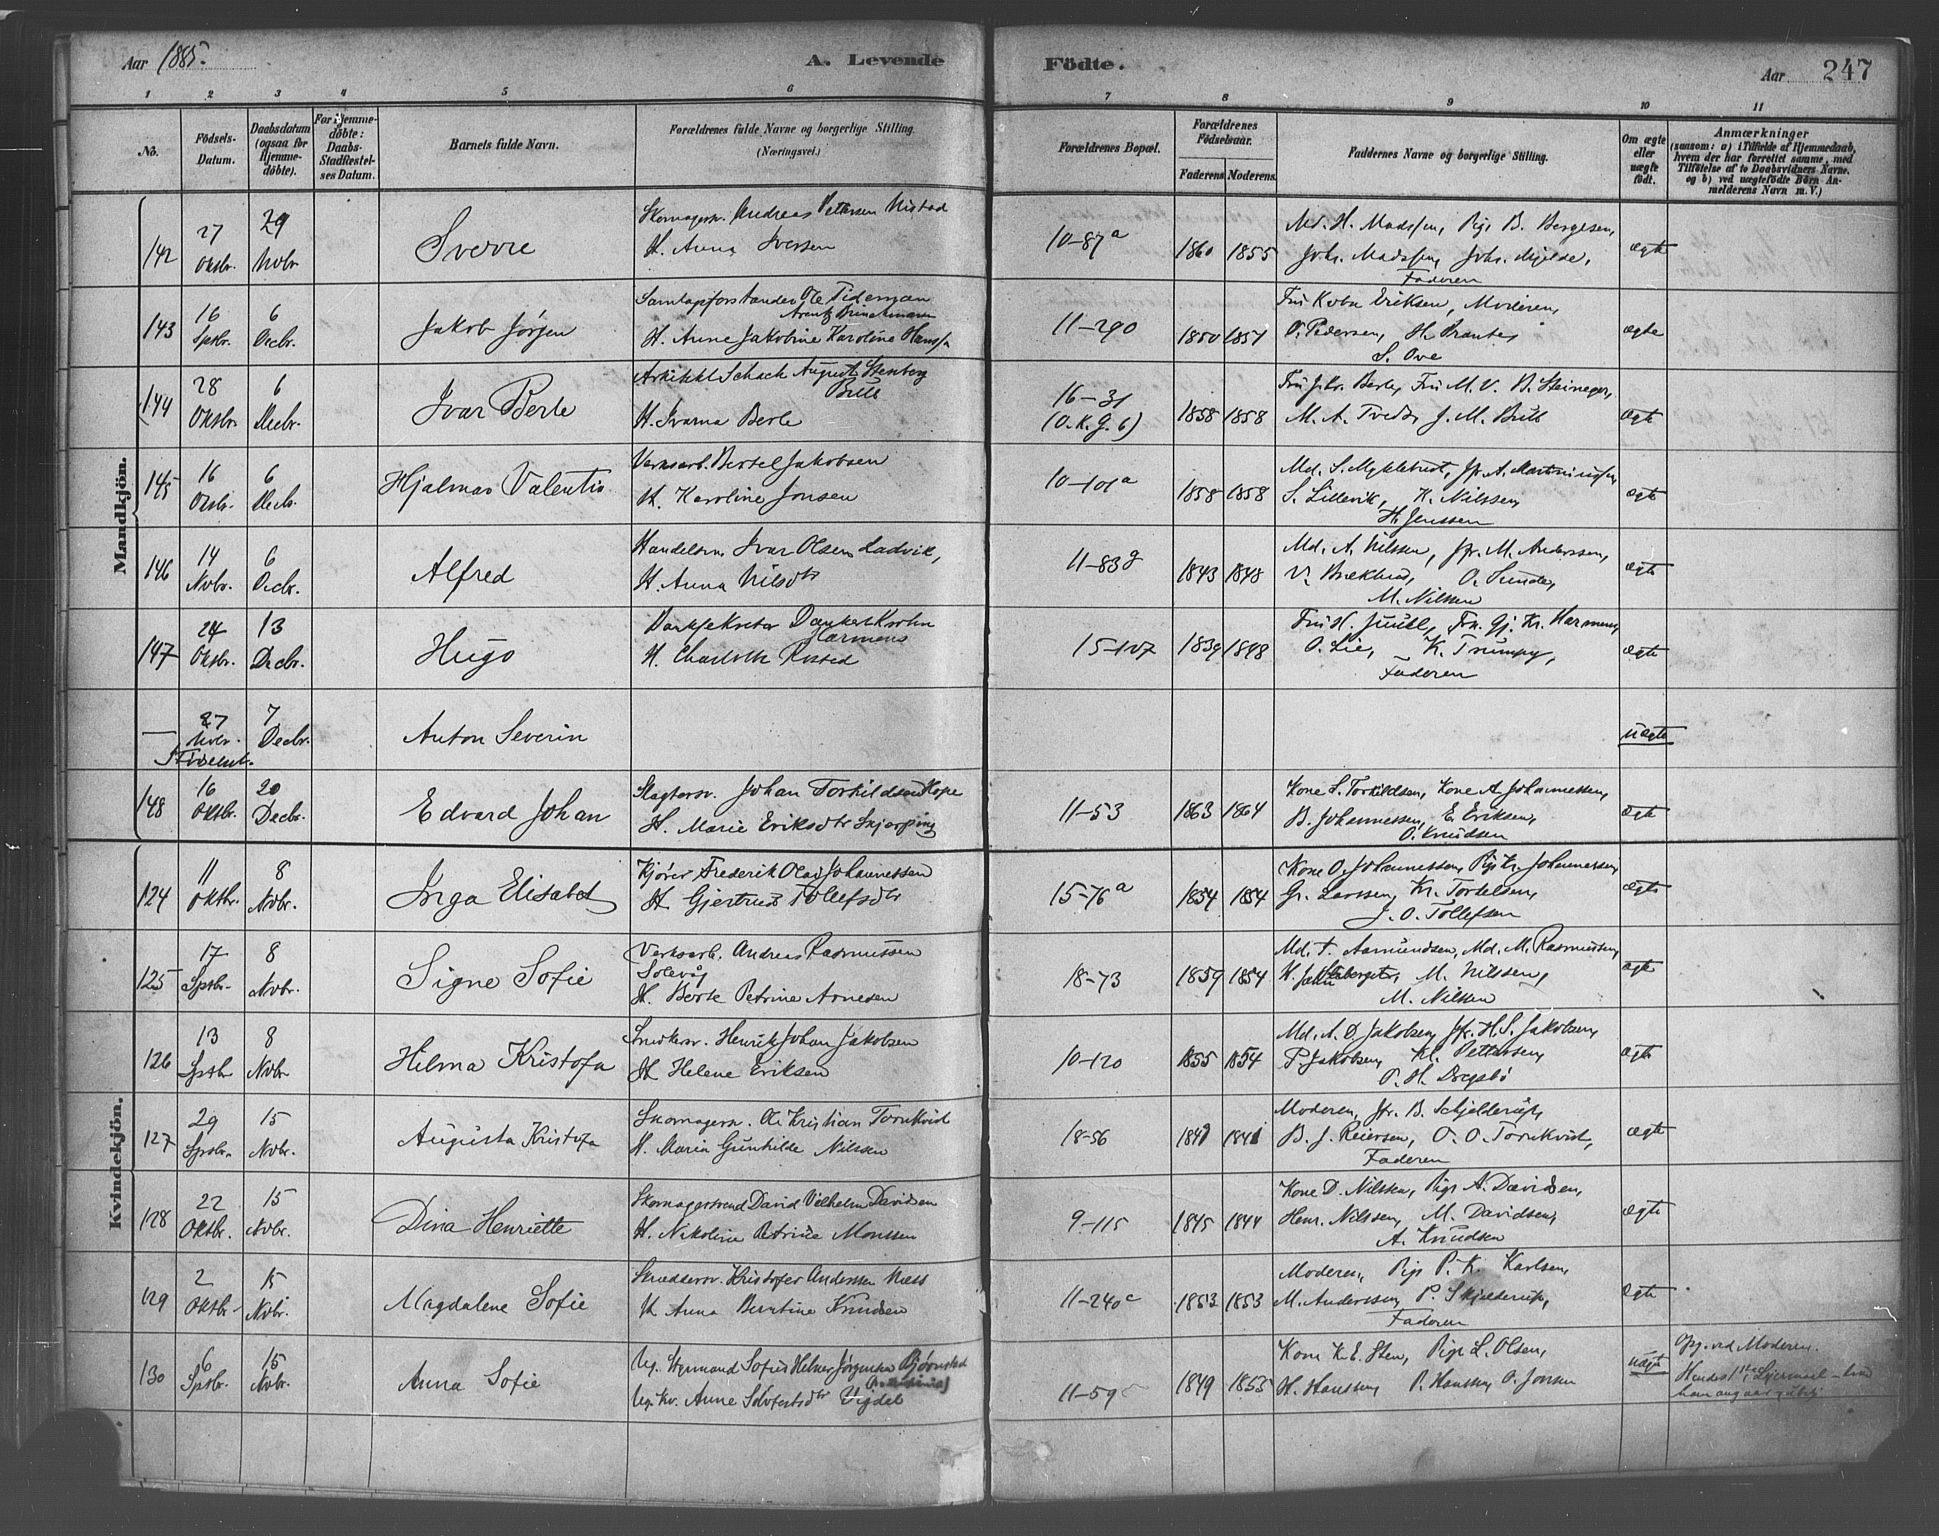 Aar 1885.
A. Levende Födte.
Aar 247
1 2 3 4 5 6 7 8 9 10 11
No.
Födsels-Datum.
Daabsdatum (ogsaa for Hjemme-döbte).
For Hjemme-döbte: Daabs-Stadfestel-ses Datum.
Barnets fulde Navn.
Forældrenes fulde Navne og borgerlige Stilling.
(Næringsvei.)
Forældrenes Bopæl.
Forældrenes Födselsaar.
Faderens Moderens
Faddernes Navne og borgerlige Stilling.
Om ægte eller uægte födt.
Anmærkninger
(saasom: a) i Tilfælde af Hjemmedaab, hvem der har forrettet samme, med Tilföielse af to Daabsvidners Navne. og b) ved uægtefödte Börn An-melderens Navn m. V.)
Mandkjön.
142 27 Oktbr. 29 Novbr. Sverre
Skomagersv. Andreas Pettersen Nistad
H. Anna Iversen
10-87a 1860 1855
Md. H. Madssen, Pige B. Bergesen,
Johs. Madssen, Johs. Mjelde,
Faderen
ægte
143 16 Sptbr. 6 Decbr. Jakob Jørgen
Samlagsforstander Ole Tideman
Arentz Brinchmann
H. Anne Jakobine Karoline Hanssen
11-290 1850 1857
Fru Eriksen, Moderen,
O. Pedersen, H. Brantes
S. Ove
ægte
144 28 Oktbr. 6 Decbr. Ivar Berle
Arkitekt Schack August Stenberg
Bull
H. Ivarna Berle
16-31
(O. K. G. 6) 1858 1858
Fru Johs. Berle, Fru M. V. B. Steineger,
M. A. Tvedt, J. M. Bull
ægte
145 16 Oktbr. 6 Decbr. Hjalmar Valentin
Verksarb. Bertel Jakobsen
H. Karoline Jonsen
10-101a 1858 1858
Md. S. Myklebust, Jfr. A. Martinussen,
S. Lillevik, K. Nilssen,
H. Jenssen
ægte
146 14 Novbr. 6 Decbr. Alfred
Handelsm. Ivar Olsen Ladvik,
H. Anna Nilsdtr
11-83g 1843 1848
Md. A. Nilssen, Jfr. M. Anderssen,
V. Brekhus, O. Sunde,
M. Nilssen
ægte
147 24 Oktbr. 13 Decbr. Hugo
Banksekretær Dankert Krohn
Harmens
H. Charlotte Rosted
15-107 1839 1848
Fru H. Juull, Frk. Gj. Kr. Harmens,
O. Lie, K. Trumpy,
Faderen
ægte
— 27 Novbr. 7 Decbr. Anton Severin
uægte
Stiftelsen.
148 16 Oktbr. 20 Decbr. Edvard Johan
Slagtersv. Johan Torkildsen Hope
H. Marie Eriksdtr Skjerping
11-53 1863 1864
Kone S. Torkildsen, Kone A. Johannessen,
B. Johannessen, E. Eriksen,
O. Knudsen
ægte
Kvindekjön.
124 11 Oktbr. 8 Novbr. Inga Elisabet
Kjører Frederik Olai Johannessen
H. Gjertrud Tollefsdtr
15-76a 1854 1854
Kone O. Johannessen, Pige Kr. Johannessen,
Gr. Larssen, Kr. Torkelsen,
J. O. Tollefsen
ægte
125 17 Sptbr. 8 Novbr. Signe Sofie
Verksarb. Andreas Rasmussen
Solevåg
H. Berte Petrine Arnesen
18-73 1859 1854
Md. T. Aamundsen, Md. M. Rasmussen,
M. Nilssen,
M. Nilsen
ægte
126 13 Sptbr. 8 Novbr. Helma Kristofa
Snedkersv. Henrik Johan Jakobsen
H. Helene Eriksen
10-120 1855 1854
Md. A. O. Jakobsen, Jfr. H. S. Jakobsen,
P. Jakobsen, Kl. Pettersen,
O. H. Dregsbö
ægte
127 29 Sptbr. 15 Novbr. Augusta Kristofa
Skomagersv. Ole Kristian Tornkvist
H. Maria Gunhilde Nilssen
18-56 1841 1841
Moderen, Jfr. B. Schjelderup,
B. J. Reiersen, O. O. Tornkvist,
Faderen
ægte
128 22 Oktbr. 15 Novbr. Dina Henriette
Skomagersvend David Vilhelm Davidsen
H. Nikoline Petrine Monssen
9-115 1845 1844
Kone D. Nilssen, Pige A. Davidsen,
Henr. Nilssen, M. Davidsen,
A. Knudsen
ægte
129 2 Oktbr. 15 Novbr. Magdalene Sofie
Skreddersv. Kristofer Anderssen Næss
H. Anna Berntine Knudsen
11-240c 1853 1853
Moderen, Pige P. K. Karlsen,
M. Anderssen, P. Skjelderup,
Faderen
ægte
130 6 Sptbr. 15 Novbr. Anna Sofie
Ug. Styrmand Sofus Helmer Jørgensen Bjørnstad
Ug. Kv. Anne Solvfestsdtr Vigdal
11-59c 1849 1855
Kone K. E. Sten, Pige L. Olsen,
H. Hanssen, P. Hanssen, O. Jonsen
uægte
Opg. ved Moderen.
Hendes 1ste Leiermaal